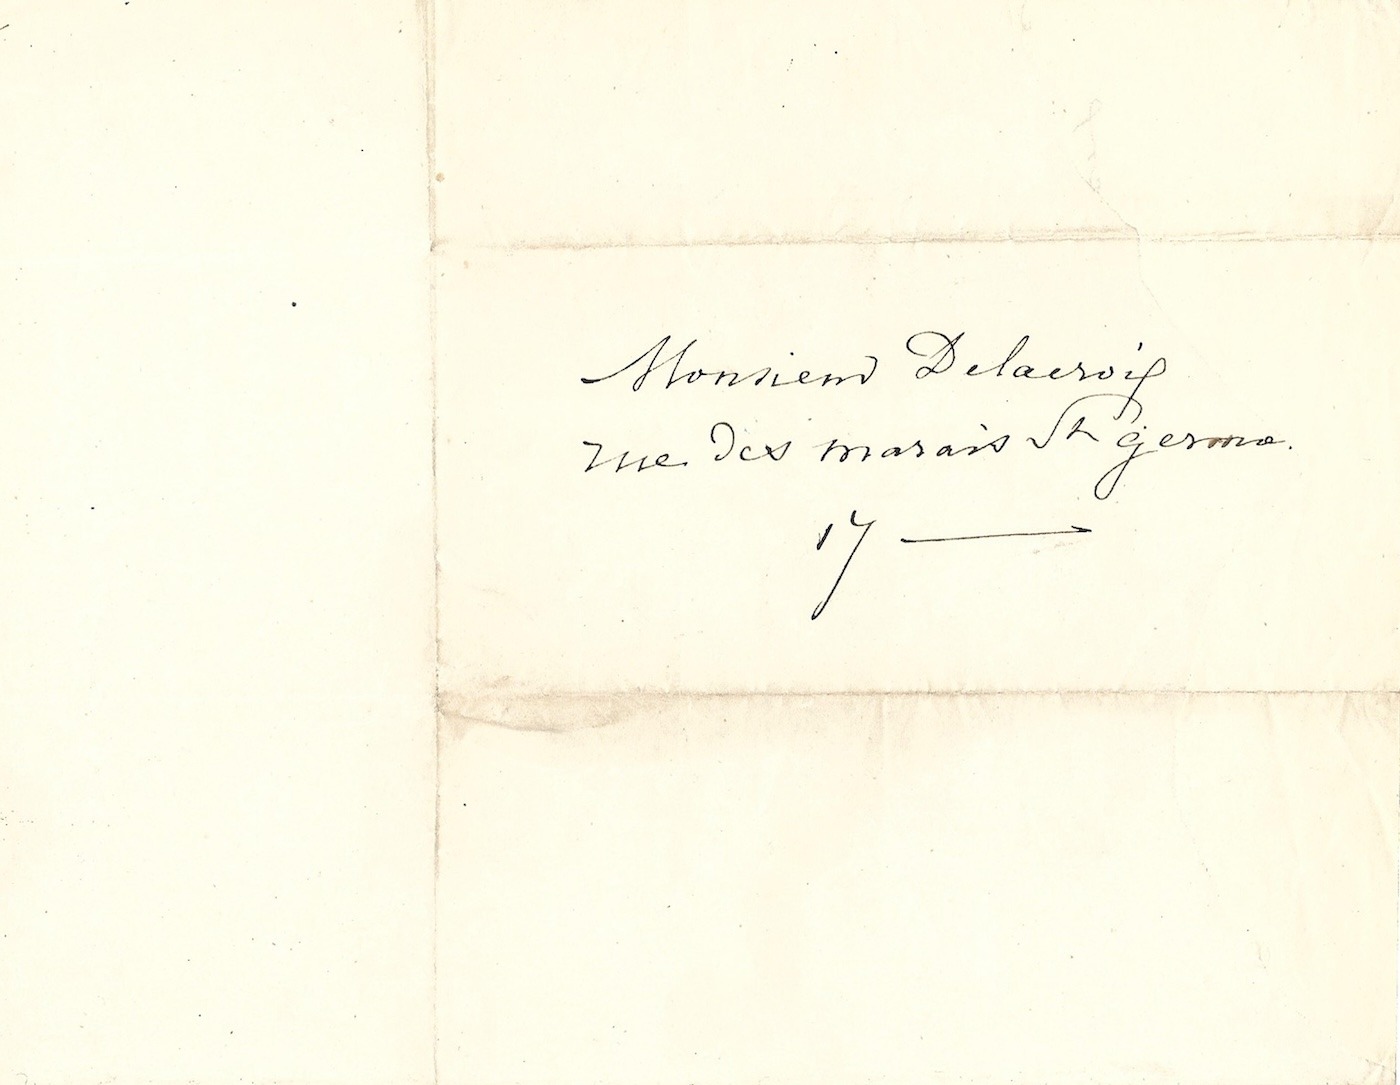 Monsieur Delacroix
rue des marais St germa.
17